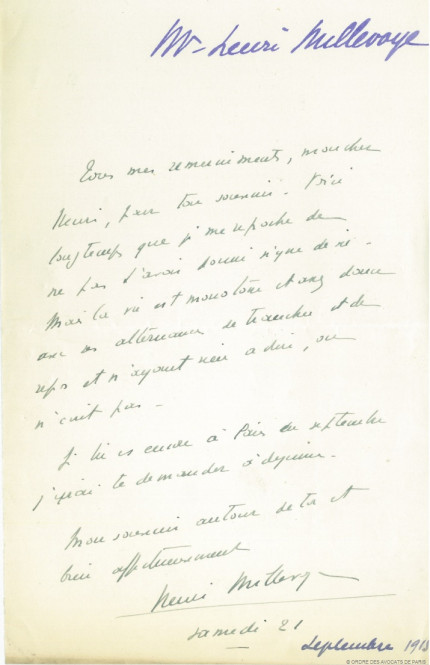 Mr Henri Millevoye
Tous mes remerciements, mon cher
Henri, pour ton souvenir. Voici
longtemps que je me reproche de
ne pas t'avoir donné signe de vie.
Mais la vie est monotone et assez douce
avec ses alternances de tranchée et de
repos et n'ayant rien à dire, on
n'écrit pas.
Si tu es encore à Paris en septembre
j'irai te demander à déjeuner.
Mon souvenir autour de toi et
bien affectueusement
Henri Millevoye
samedi 21
Septembre 1915
© ORDRE DES AVOCATS DE PARIS